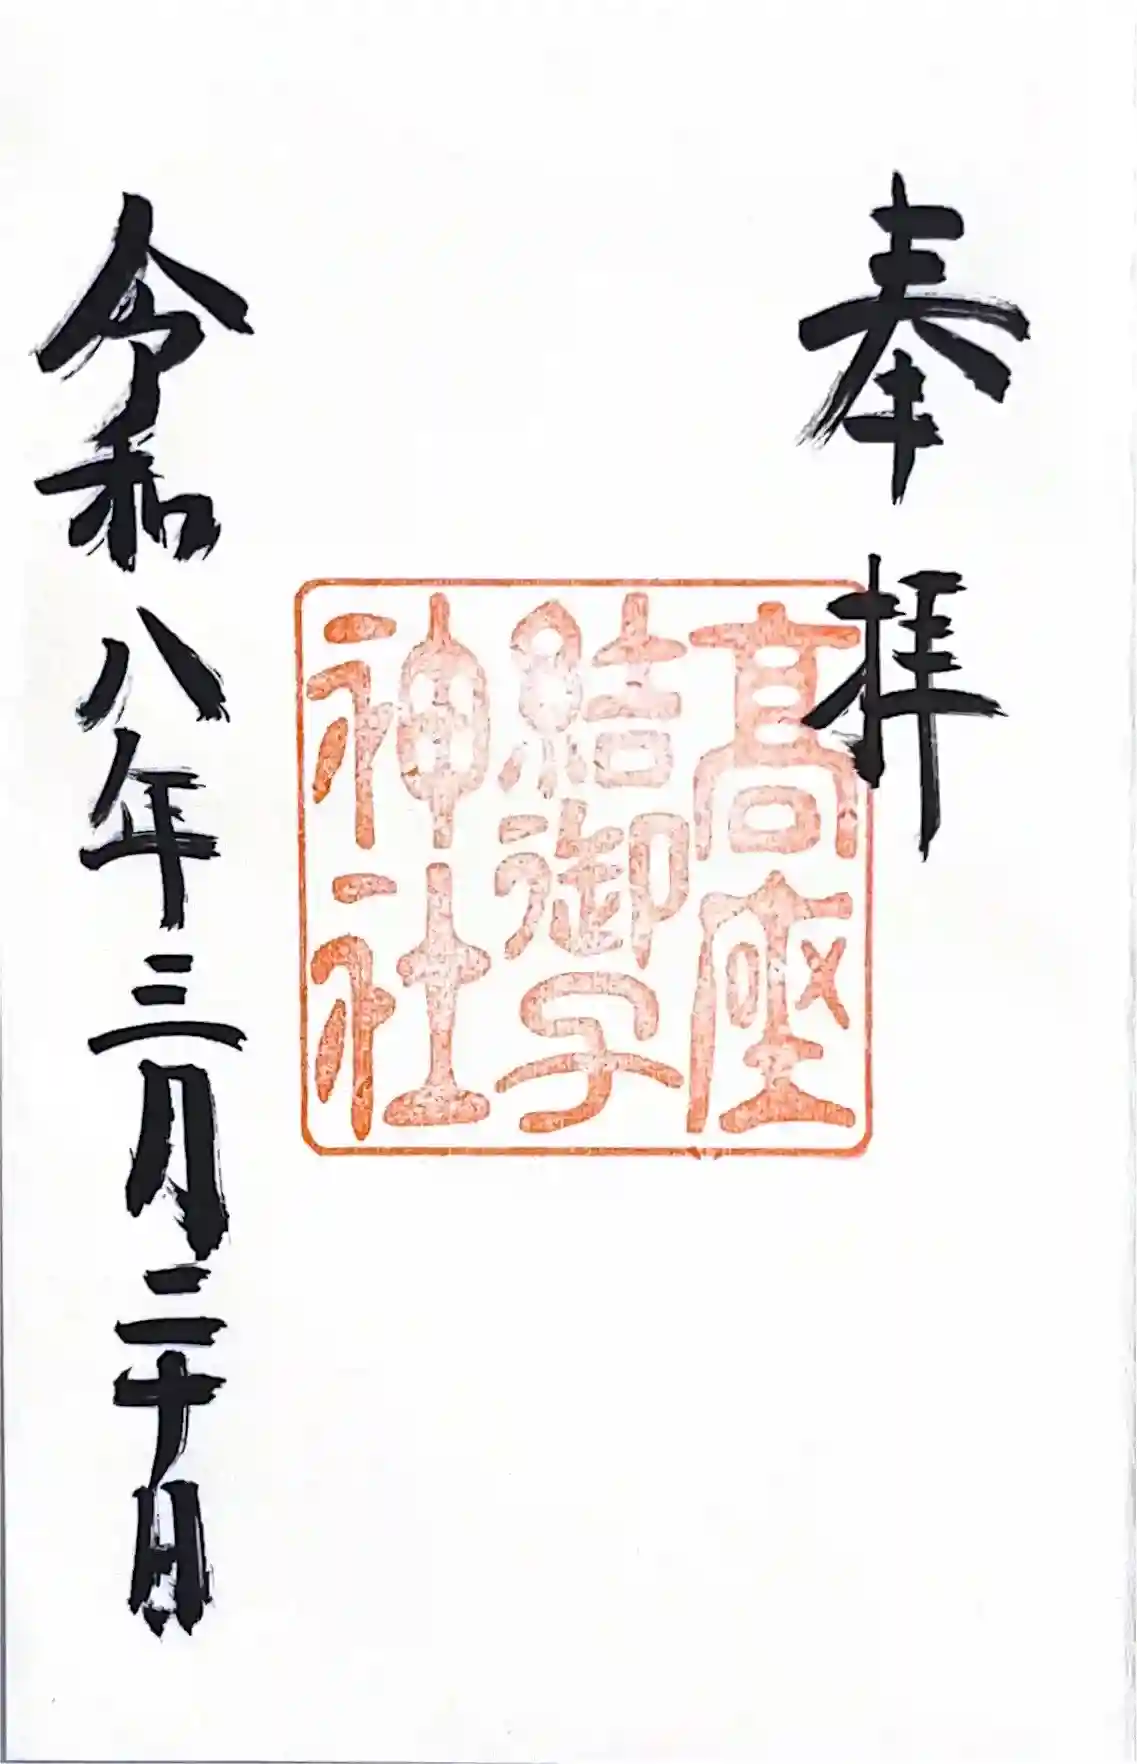 奉拝
髙座
結御子
神社
令和八年三月二十日